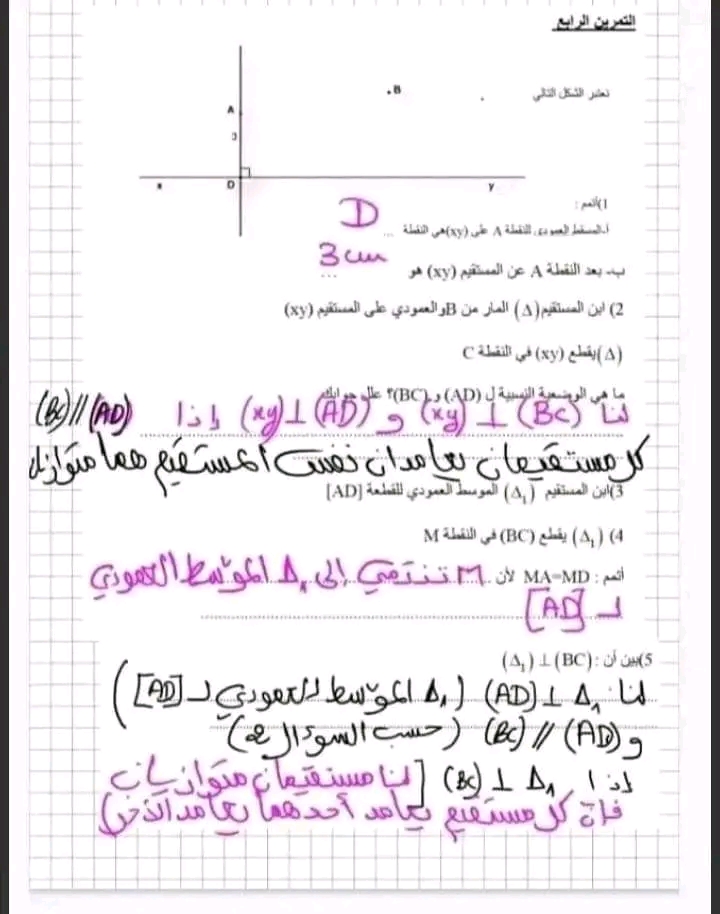 التمرين الرابع
نعتبر الشكل التالي
B
A
3
D
x
y
1)أتمم :
أ-المسقط العمودي للنقطة A على (xy)هي النقطة ... D
ب- بعد النقطة A عن المستقيم (xy) هو ... 3 cm
2) ابن المستقيم(Δ) المار من Bو العمودي على المستقيم (xy)
(Δ)يقطع (xy) في النقطة C
ما هي الوضعية النسبية ل (AD) و (BC)؟ علل جوابك
لنا (BC) ⊥ (xy) و (AD) ⊥ (xy) إذا (BC) // (AD)
كل مستقيمان يعامدان نفس المستقيم هما متوازيان
3)ابن المستقيم (Δ₁) الموسط العمودي للقطعة [AD]
4) (Δ₁) يقطع (BC) في النقطة M
أتمم : MA=MD لأن M تنتمي إلى Δ₁ الموسط العمودي
لـ [AD]
5)بين أن : (Δ₁) ⊥ (BC)
لنا Δ₁ ⊥ (AD) (Δ₁ الموسط العمودي لـ [AD])
و (AD) // (BC) (حسب السؤال 2)
إذا Δ₁ ⊥ (BC) [لنا مستقيمان متوازيان
فإن كل مستقيم يعامد أحدهما يعامد الآخر)